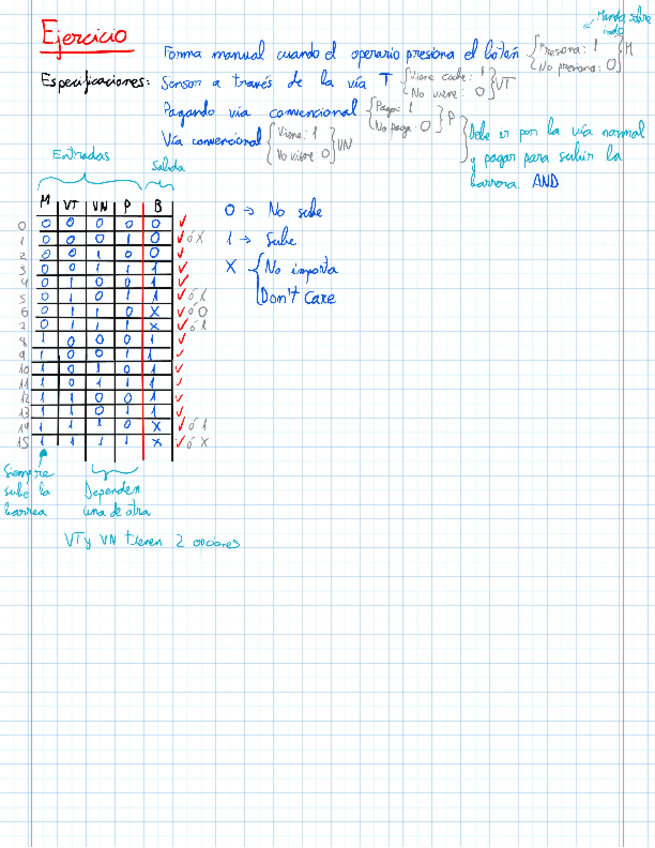 Manda sobre todo
Ejercicio
Forma manual cuando el operario presiona el botón { Presiona: 1 No presiona: 0 } M
Especificaciones: Sensor a través de la vía T { Viene coche: 1 No viene: 0 } VT
Pagando vía convencional { Paga: 1 No paga: 0 } P
Vía convencional { Viene: 1 No viene 0 } VN
Debe ir por la vía normal
y pagar para subir la
barrera. AND
Entradas
Salida
M VT VN P B
0 0 0 0 0 0 ✓
1 0 0 0 1 0 ✓ ó X
2 0 0 1 0 0 ✓
3 0 0 1 1 1 ✓
4 0 1 0 0 1 ✓
5 0 1 0 1 1 ✓ ó X
6 0 1 1 0 X ✓ ó 0
7 0 1 1 1 X ✓ ó 1
8 1 0 0 0 1 ✓
9 1 0 0 1 1 ✓
10 1 0 1 0 1 ✓
11 1 0 1 1 1 ✓
12 1 1 0 0 1 ✓
13 1 1 0 1 1 ✓
14 1 1 1 0 X ✓ ó 1
15 1 1 1 1 X ✓ ó X
0 → No sube
1 → Sube
X { No importa
Don't Care
Siempre
sube la
barrea
Dependen
una de otra
VT y VN tienen 2 opciones